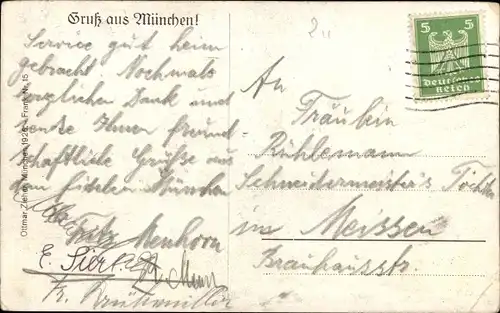 Gruß aus München!
Service gut heim
gebracht. Nochmals
herzlichen Dank und
sende Ihnen freund
schaftliche Grüße aus
dem fidelen München
Fritz Neuhorn
E. Siert
Fr.
Ottmar Zieher, München 1926 Frank Nr. 15
5 5
Deutsches
Reich
An
Fräulein
Rühlemann
Schneidermeister's Tochter
in Meissen
Brauhausstr.